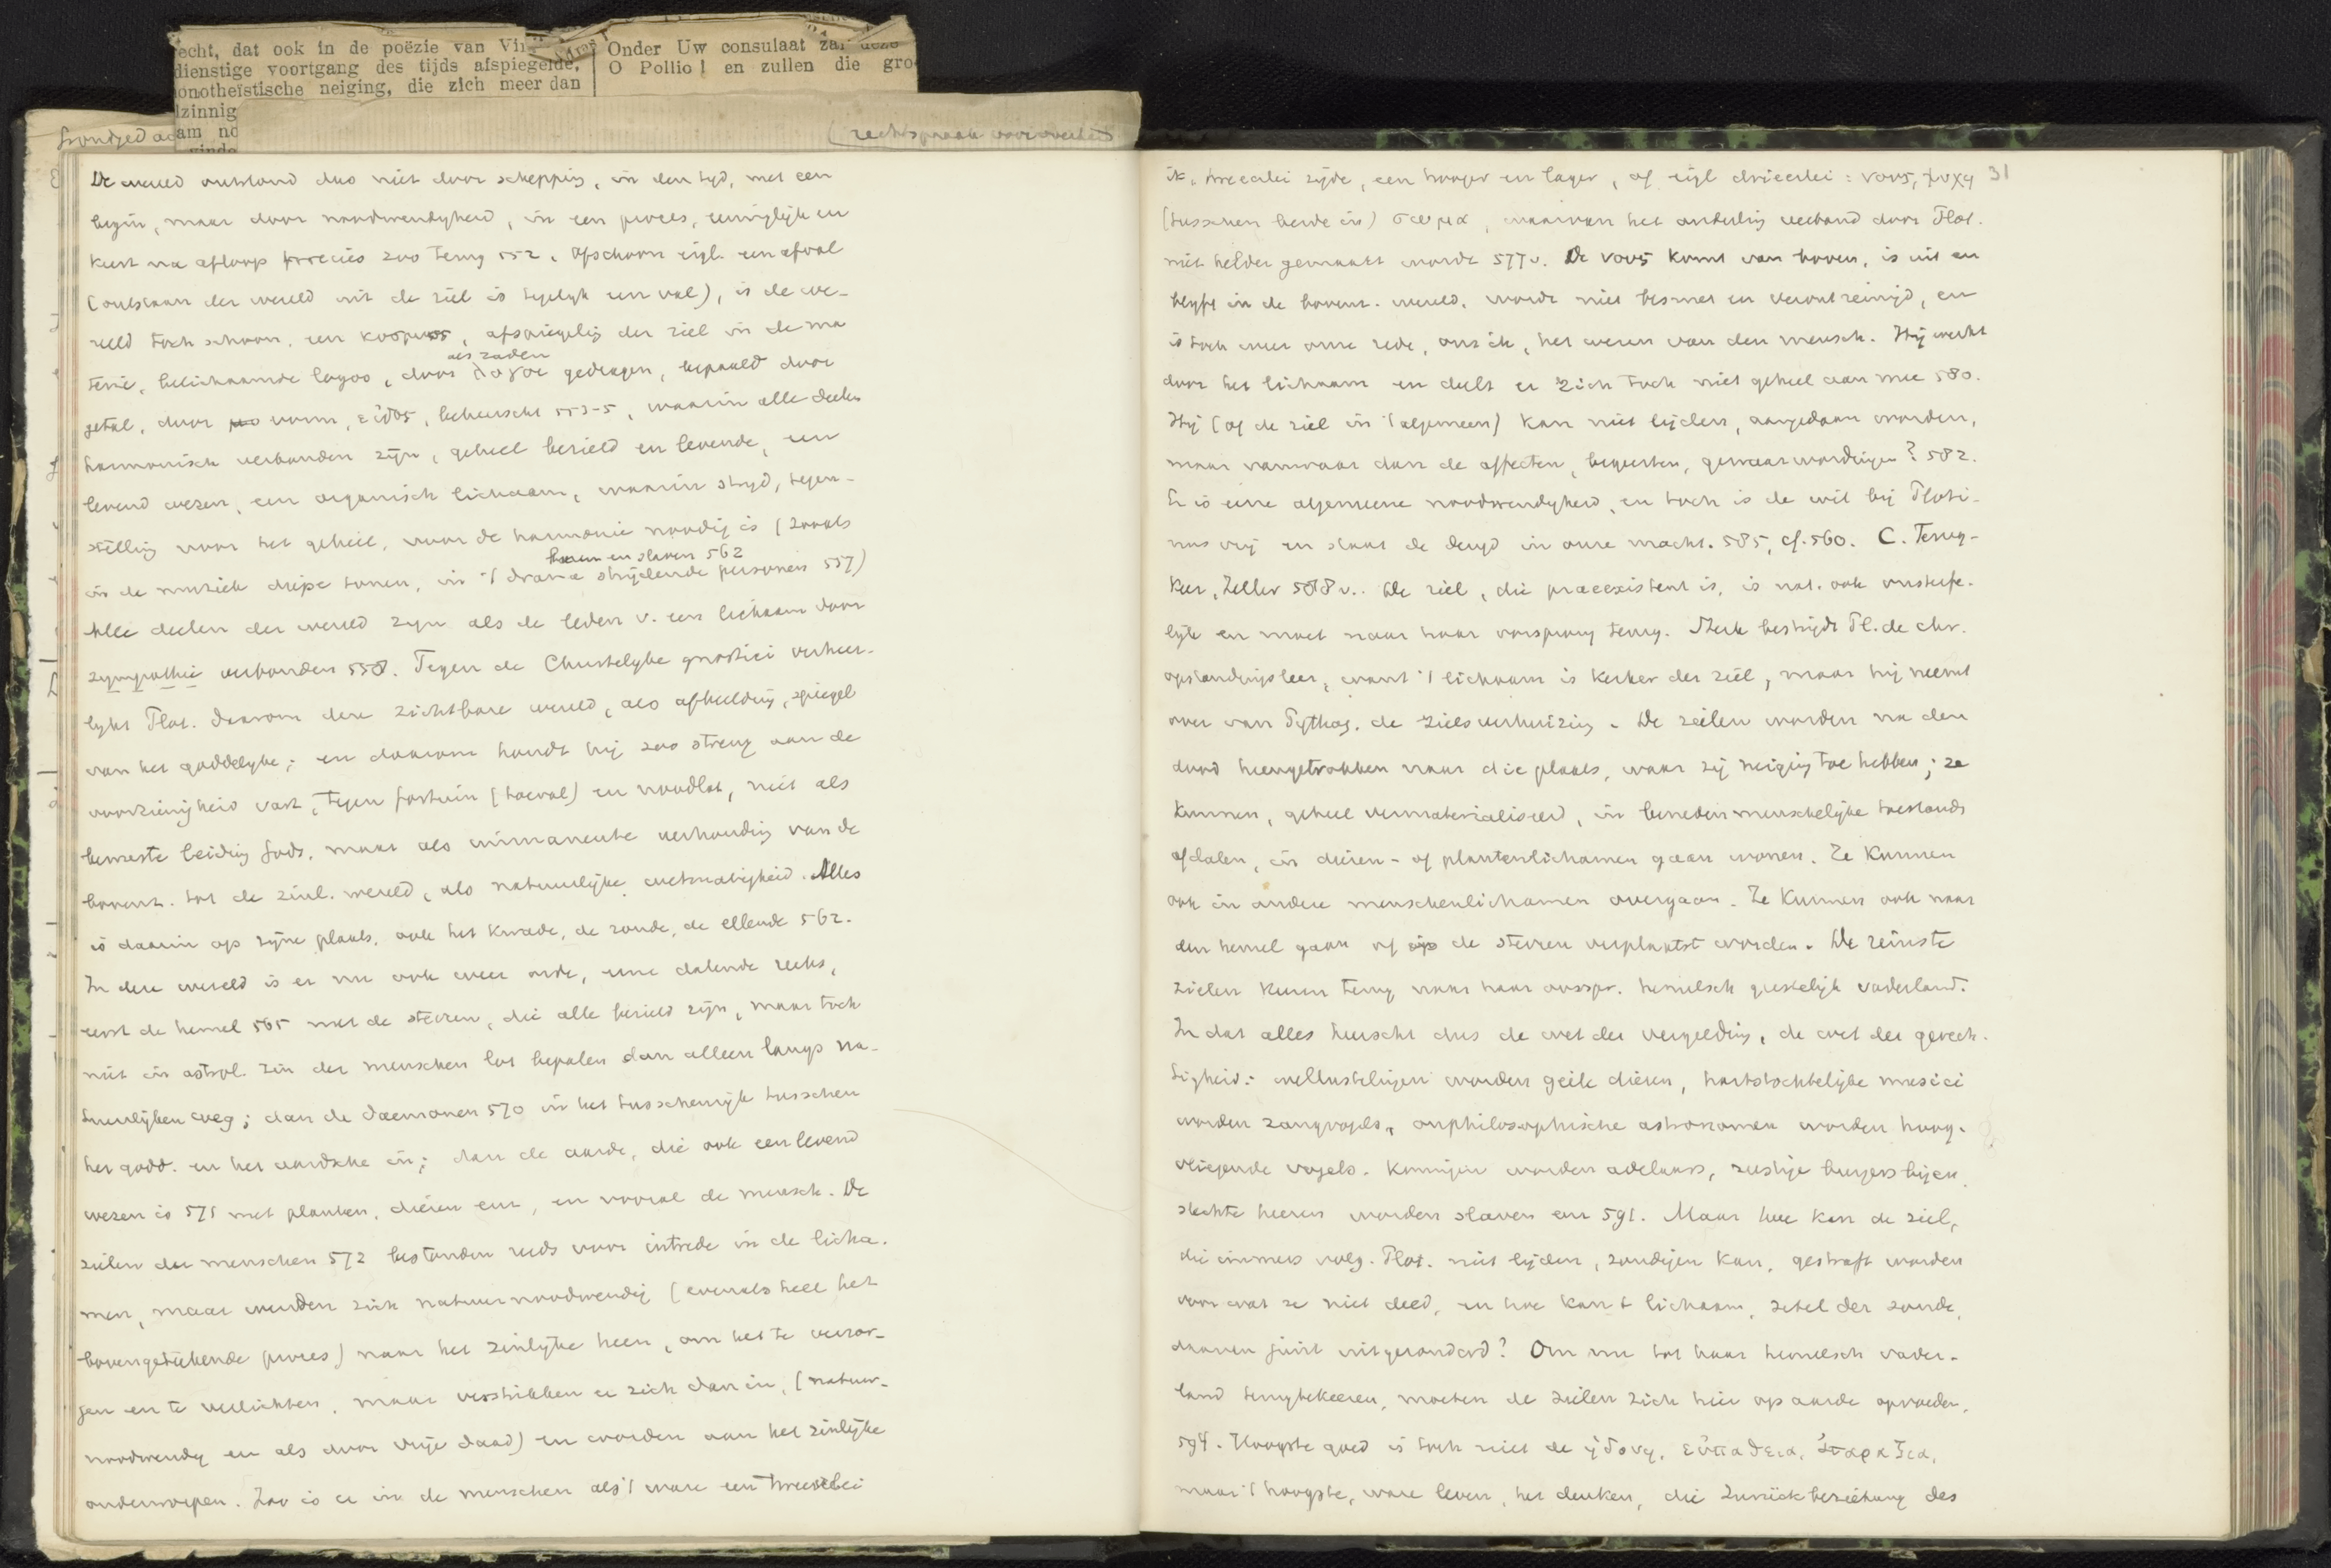 echt, dat ook in de poëzie van Vir
dienstige voortgang des tijds afspiegelde,
onotheïstische neiging, die zich meer dan
zinnig
am no
Onder Uw consulaat zal deze
O Pollio! en zullen die gro
De wereld ontstond dus niet door schepping, in den tyd, met een
begin, maar door noodwendigheid, in een proces, eeuwiglijk en
keert na afloop precies zoo terug 552. Ofschoon eigl. een afval
(ontstaan der wereld uit de ziel is tegelyk een val), is de we-
reld toch schoon, een κοσμος, afspiegelig der ziel in de ma
terie, belichaamde logos, door λογοι als zaden gedragen, bepaald door
getal, door vorm, εἰδος, beheerscht 553-5, waarin alle deelen
harmonisch verbonden zijn, geheel bezield en levende, een
levend wezen, een organisch lichaam, waarin stryd, tegen-
stelling voor het geheel, voor de harmonie noodig is (zooals
in de muziek diepe tonen, in 't drama heeren en slaven 562 strijdende personen 557)
Alle deelen der wereld zyn als de leden v. een lichaam door
sympathie verbonden 558. Tegen de Christelyke gnostici verheer-
lykt Plot. daarom deze zichtbare wereld, als afbeelding, spiegel
van het goddelyke; en daarom houdt hij zoo streng aan de
voorzienigheid vast, tegen fortuin (toeval) en noodlot, niet als
bewuste leiding Gods, maar als immanente verhouding van de
bovenz. tot de zinl. wereld, als natuurlijke wetmatigheid. Alles
is daarin op zijne plaats, ook het kwade, de zonde, de ellende 562.
In deze wereld is er nu ook weer orde, eene dalende reeks,
eerst de hemel 565 met de sterren, die alle bezield zijn, maar toch
niet in astrol. zin der menschen lot bepalen dan alleen langs na-
tuurlijken weg; dan de daemonen 570 in het tusschenrijk tusschen
het godd. en het aardsche in; dan de aarde, die ook een levend
wezen is 571 met planten, dieren enz, en vooral de mensch. De
zielen der menschen 572 bestonden reeds voor intrede in de licha-
men, maar wenden zich natuurnoodwendig (evenals heel het
bovengeteekende proces) naar het zinlijke heen, om het te verzor-
gen en te verlichten, maar verstrikken er zich dan in, (natuur-
noodwendig en als door vrije daad) en worden aan het zinlijke
onderworpen. Zoo is er in de menschen als 't ware een tweeërlei
31
ik, tweeerlei zijde, een hooger en lager, of eigl drieerlei: νους, ψυχη
(tusschen beide in) σωμα, waarvan het onderling verband door Plot.
niet helder gemaakt wordt 577 v. De νους komt van boven, is uit en
blyft in de bovenz. wereld, wordt niet besmet en verontreinigd, en
is toch weer onze rede, ons ik, het wezen van den mensch. Hij werkt
door het lichaam en deelt er zich toch niet geheel aan mee 580.
Hij (of de ziel in 't algemeen) kan niet lijden, aangedaan worden,
maar vanwaar dan de affecten, begeerten, gewaarwordingen? 582.
Er is eene algemeene noodwendigheid, en toch is de wil bij Ploti-
nus vrij en staat de deugd in onze macht. 585, cf. 560. C. Terug-
keer, Zeller 588 v.. De ziel, die praeexistent is, is nat. ook onsterfe-
lijk en moet naar haar oorsprong terug. Sterk bestrijdt Pl. de chr.
opstandingsleer, want 't lichaam is kerker der ziel, maar hij neemt
over van Pythag. de zielsverhuizing. De zielen worden na den
dood heengetrokken naar die plaats, waar zij neiging toe hebben; ze
kunnen, geheel vermaterialiseerd, in benedenmenschelijke toestands
afdalen, in dieren- of plantenlichamen gaan wonen. Ze kunnen
ook in andere menschenlichamen overgaan. Ze kunnen ook naar
den hemel gaan of op de sterren verplaatst worden. De reinste
zielen keeren terug naar haar oorspr. hemelsch geestelijk vaderland.
In dat alles heerscht dus de wet der vergelding, de wet der gerech-
tigheid: wellustelingen worden geile dieren, hartstochtelijke musici
worden zangvogels, onphilosophische astronomen worden hoog-
vliegende vogels. Koningen worden adelaars, rustige burgers bijen,
slechte heeren worden slaven enz 591. Maar hoe kan de ziel,
die immers volg. Plot. niet lijden, zondigen kan, gestraft worden
voor wat ze niet deed, en hoe kan 't lichaam, zetel der zonde,
daarvan juist uitgezonderd? Om nu tot haar hemelsch vader-
land terugtekeeren, moeten de zielen zich hier op aarde opvoeden,
594. Hoogste goed is toch niet de ἡδονη, εὐπαθεια, ἀταραξια,
maar 't hoogste, ware leven, het denken, die Zurückbeziehung des